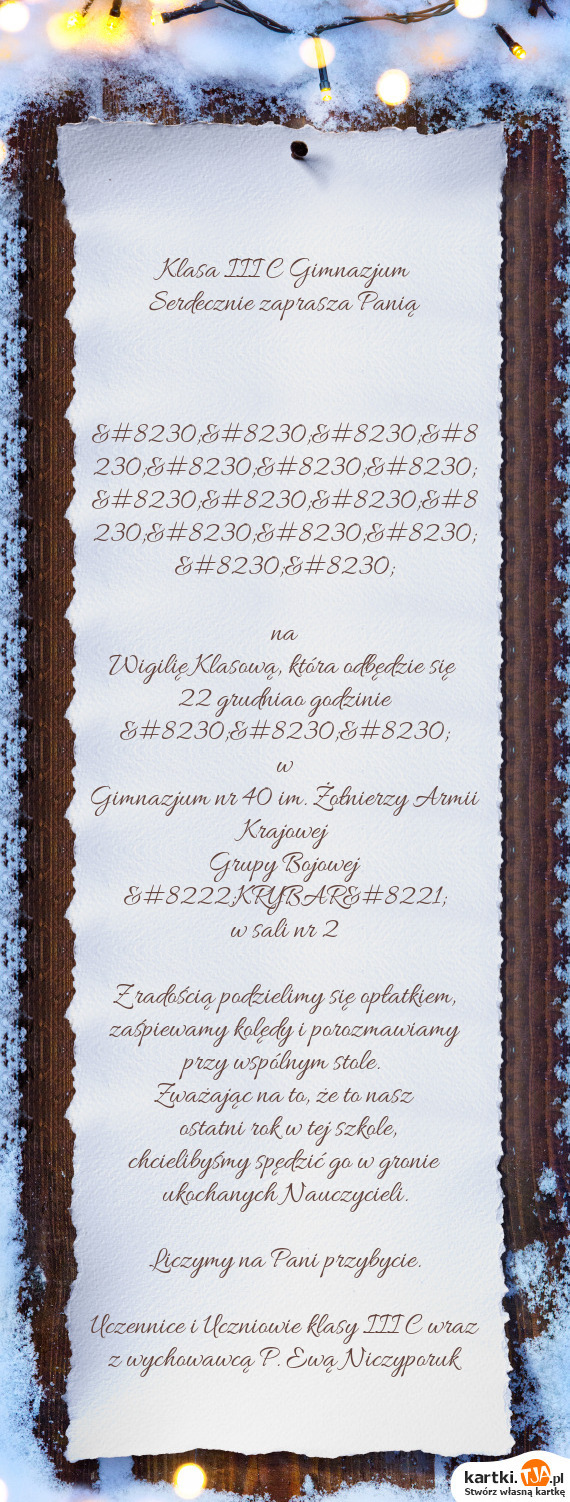 Klasa III C Gimnazjum
Serdecznie zaprasza Panią
&#8230;&#8230;&#8230;&#8
230;&#8230;&#8230;&#8230;
&#8230;&#8230;&#8230;&#8
230;&#8230;&#8230;&#8230;
&#8230;&#8230;
na
Wigilię Klasową, która odbędzie się
22 grudniao godzinie
&#8230;&#8230;&#8230;
w
Gimnazjum nr 40 im. Żołnierzy Armii
Krajowej
Grupy Bojowej
&#8222;KRYBAR&#8221;
w sali nr 2
Z radością podzielimy się opłatkiem,
zaśpiewamy kolędy i porozmawiamy
przy wspólnym stole.
Zważając na to, że to nasz
ostatni rok w tej szkole,
chcielibyśmy spędzić go w gronie
ukochanych Nauczycieli.
Liczymy na Pani przybycie.
Uczennice i Uczniowie klasy III C wraz
z wychowawcą P. Ewą Niczyporuk
kartki.TJA.pl
Stwórz własną kartkę